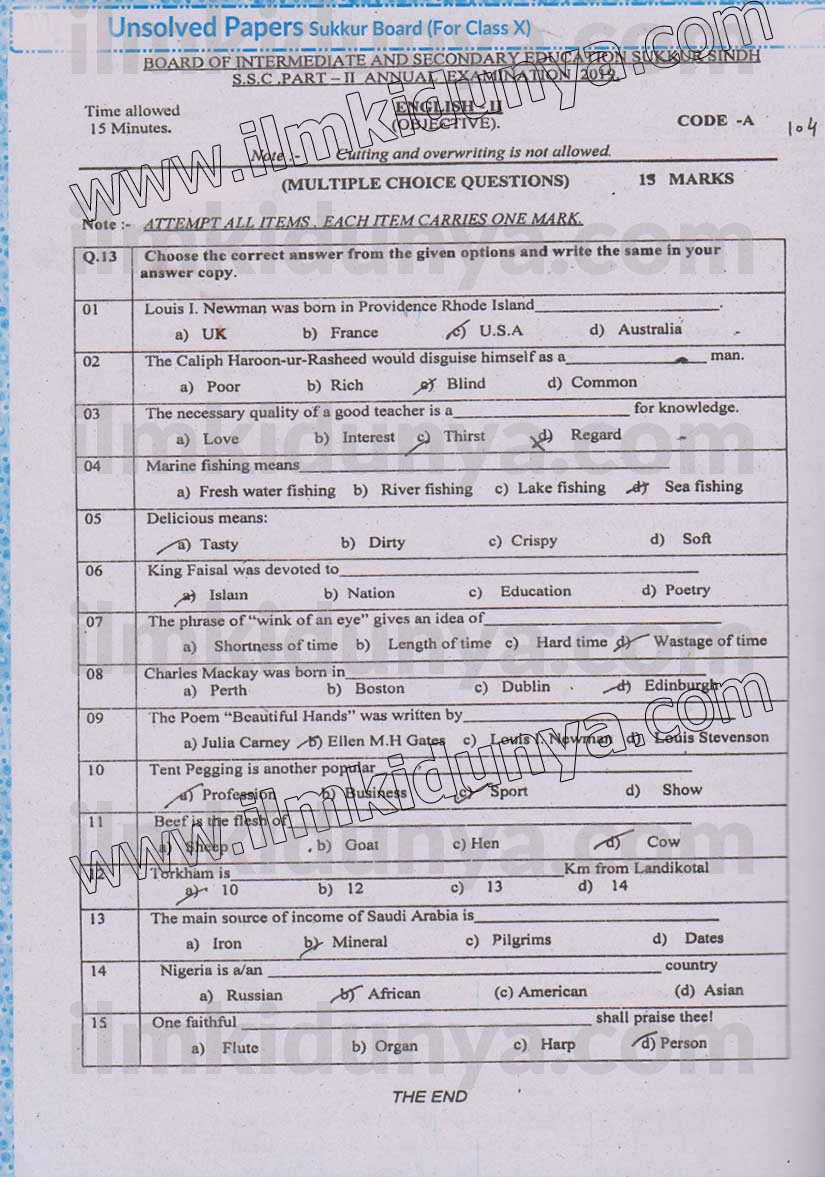 Unsolved Papers Sukkur Board (For Class X)
BOARD OF INTERMEDIATE AND SECONDARY EDUCATION SUKKUR SINDH
S.S.C .PART – II ANNUAL EXAMINATION 2019.
Time allowed
15 Minutes.
ENGLISH – II
(OBJECTIVE).
CODE -A
104
Note :- Cutting and overwriting is not allowed.
(MULTIPLE CHOICE QUESTIONS) 15 MARKS
Note :- ATTEMPT ALL ITEMS . EACH ITEM CARRIES ONE MARK.
Q.13 Choose the correct answer from the given options and write the same in your
answer copy.
01 Louis I. Newman was born in Providence Rhode Island____________.
a) UK b) France c) U.S.A d) Australia
02 The Caliph Haroon-ur-Rasheed would disguise himself as a____________ man.
a) Poor b) Rich c) Blind d) Common
03 The necessary quality of a good teacher is a____________ for knowledge.
a) Love b) Interest c) Thirst d) Regard
04 Marine fishing means____________
a) Fresh water fishing b) River fishing c) Lake fishing d) Sea fishing
05 Delicious means:
a) Tasty b) Dirty c) Crispy d) Soft
06 King Faisal was devoted to____________
a) Islam b) Nation c) Education d) Poetry
07 The phrase of “wink of an eye” gives an idea of____________
a) Shortness of time b) Length of time c) Hard time d) Wastage of time
08 Charles Mackay was born in____________
a) Perth b) Boston c) Dublin d) Edinburgh
09 The Poem “Beautiful Hands” was written by____________
a) Julia Carney b) Ellen M.H Gates c) Louis I. Newman d) Louis Stevenson
10 Tent Pegging is another popular____________
a) Profession b) Business c) Sport d) Show
11 Beef is the flesh of____________
a) Sheep b) Goat c) Hen d) Cow
12 Torkham is____________Km from Landikotal
a) 10 b) 12 c) 13 d) 14
13 The main source of income of Saudi Arabia is____________
a) Iron b) Mineral c) Pilgrims d) Dates
14 Nigeria is a/an ____________ country
a) Russian b) African (c) American (d) Asian
15 One faithful ____________ shall praise thee!
a) Flute b) Organ c) Harp d) Person
THE END
www.ilmkidunya.com
www.ilmkidunya.com
ilmkidunya.com
ilmkidunya.com
ilmkidunya.com
ilmkidunya.com
ilmkidunya.com
ilmkidunya.com